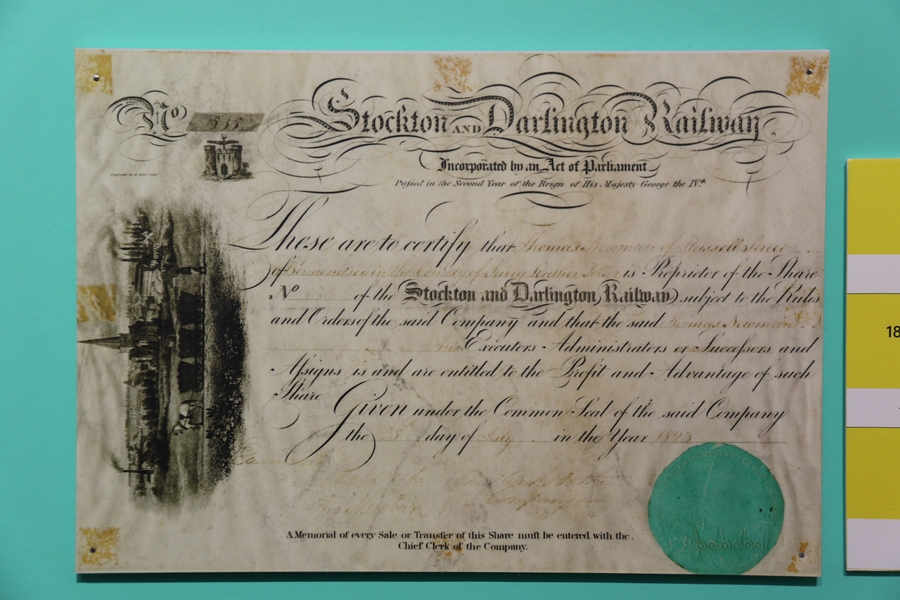 No
Stockton AND Darlington Railway.
Incorporated by an Act of Parliament
Passed in the Second Year of the Reign of His Majesty George the IVth
These are to certify that Thomas Newman of Russell Street
of in the County of Surry is Proprietor of the Share
No of the Stockton and Darlington Railway subject to the Rules
and Orders of the said Company and that the said Thomas Newman
his Executors Administrators or Successors and
Assigns is and are entitled to the Profit and Advantage of such
Share
Given under the Common Seal of the said Company
the 25 day of July in the Year 1823
A Memorial of every Sale or Transfer of this Share must be entered with the
Chief Clerk of the Company.
18